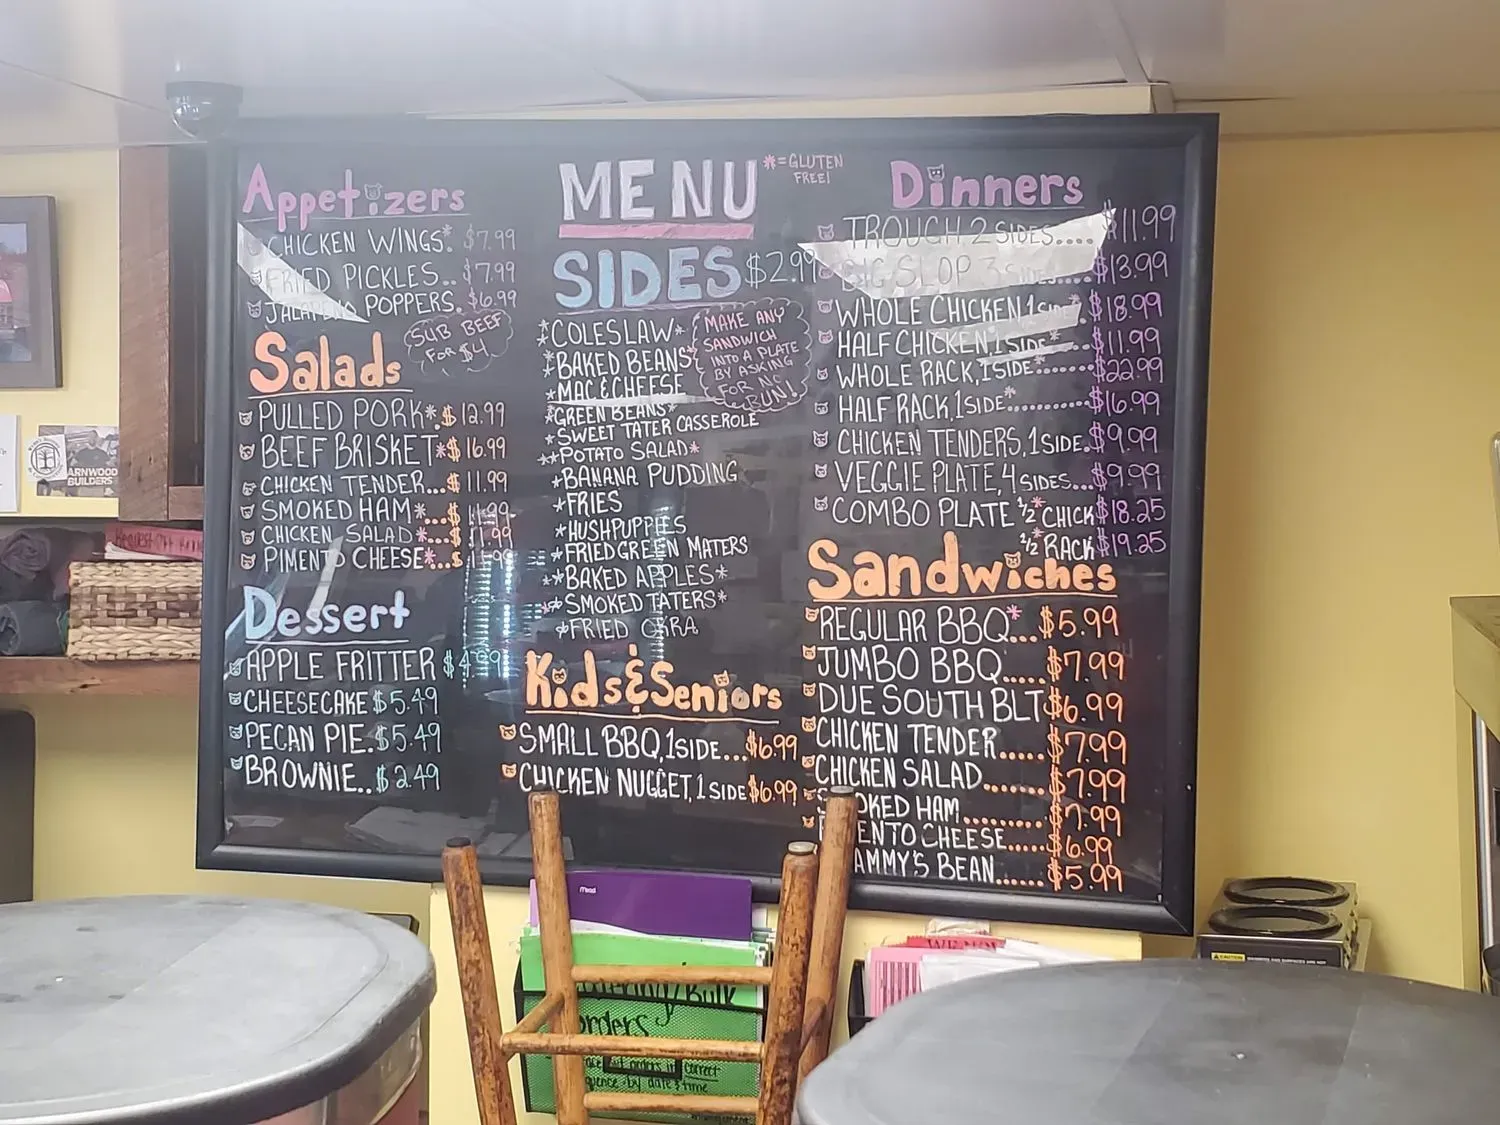 MENU
*=GLUTEN
FREE!
Appetizers
CHICKEN WINGS* $7.99
FRIED PICKLES.. $7.99
JALAPENO POPPERS. $6.99
SUB BEEF
FOR $4
Salads
PULLED PORK*.$12.99
BEEF BRISKET*$16.99
CHICKEN TENDER...$11.99
SMOKED HAM*...$11.99
CHICKEN SALAD*...$11.99
PIMENTO CHEESE*...$11.99
Dessert
APPLE FRITTER $4.99
CHEESECAKE $5.49
PECAN PIE.$5.49
BROWNIE..$2.49
SIDES $2.99
*COLESLAW*
*BAKED BEANS*
*MAC & CHEESE
*GREEN BEANS*
*SWEET TATER CASSEROLE
**POTATO SALAD*
*BANANA PUDDING
*FRIES
*HUSHPUPPIES
*FRIED GREEN MATERS
**BAKED APPLES*
**SMOKED TATERS*
*FRIED OKRA
MAKE ANY
SANDWICH
INTO A PLATE
BY ASKING
FOR NO
BUN!
Kids & Seniors
SMALL BBQ, 1 SIDE...$6.99
CHICKEN NUGGET, 1 SIDE $6.99
Dinners
TROUGH 2 SIDES....$11.99
BIG SLOP 3 SIDES....$13.99
WHOLE CHICKEN 1 SIDE* $18.99
HALF CHICKEN, 1 SIDE*...$11.99
WHOLE RACK, 1 SIDE*.......$22.99
HALF RACK, 1 SIDE*..........$16.99
CHICKEN TENDERS, 1 SIDE.$9.99
VEGGIE PLATE, 4 SIDES...$9.99
COMBO PLATE 1/2* CHICK $18.25
1/2* RACK $19.25
Sandwiches
REGULAR BBQ*...$5.99
JUMBO BBQ.....$7.99
DUE SOUTH BLT $6.99
CHICKEN TENDER.....$7.99
CHICKEN SALAD......$7.99
SMOKED HAM..........$7.99
PIMENTO CHEESE.....$6.99
AMMY'S BEAN......$5.99
ARNWOOD
BUILDERS
Mead
Catering/Bulk
orders
correct
by date & time
CAUTION